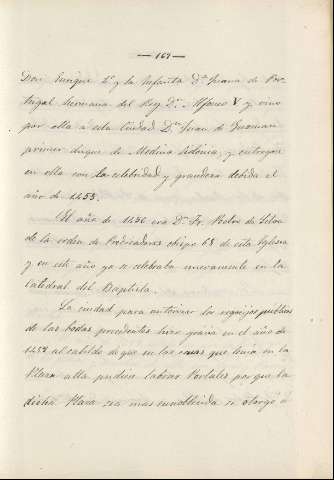 — 167 —
Don Enrique 4º y la Infanta Dª Juana de Por-
tugal hermana del Rey Dn. Alfonso V y vino
por ella a esta Ciudad Dn Juan de Guzman
primer duque de Medina Sidonia, y entregose
en ella con la celebridad y grandeza debida el
año de 1455.
El año de 1456 era Dn. Fr. Pedro de Silva
de la orden de Predicadores obispo 68 de esta Iglesia
y en este año ya se celebraba nuevamente en la
Catedral del Baptista.
La ciudad para entornar los regocijos publicos
de las bodas precedentes hizo gracia en el año de
1458 al cabildo de que en las casas que tenia en la
Plaza alta pudiese labrar Portales por que la
dicha Plaza sea mas ennoblecida se otorgó a